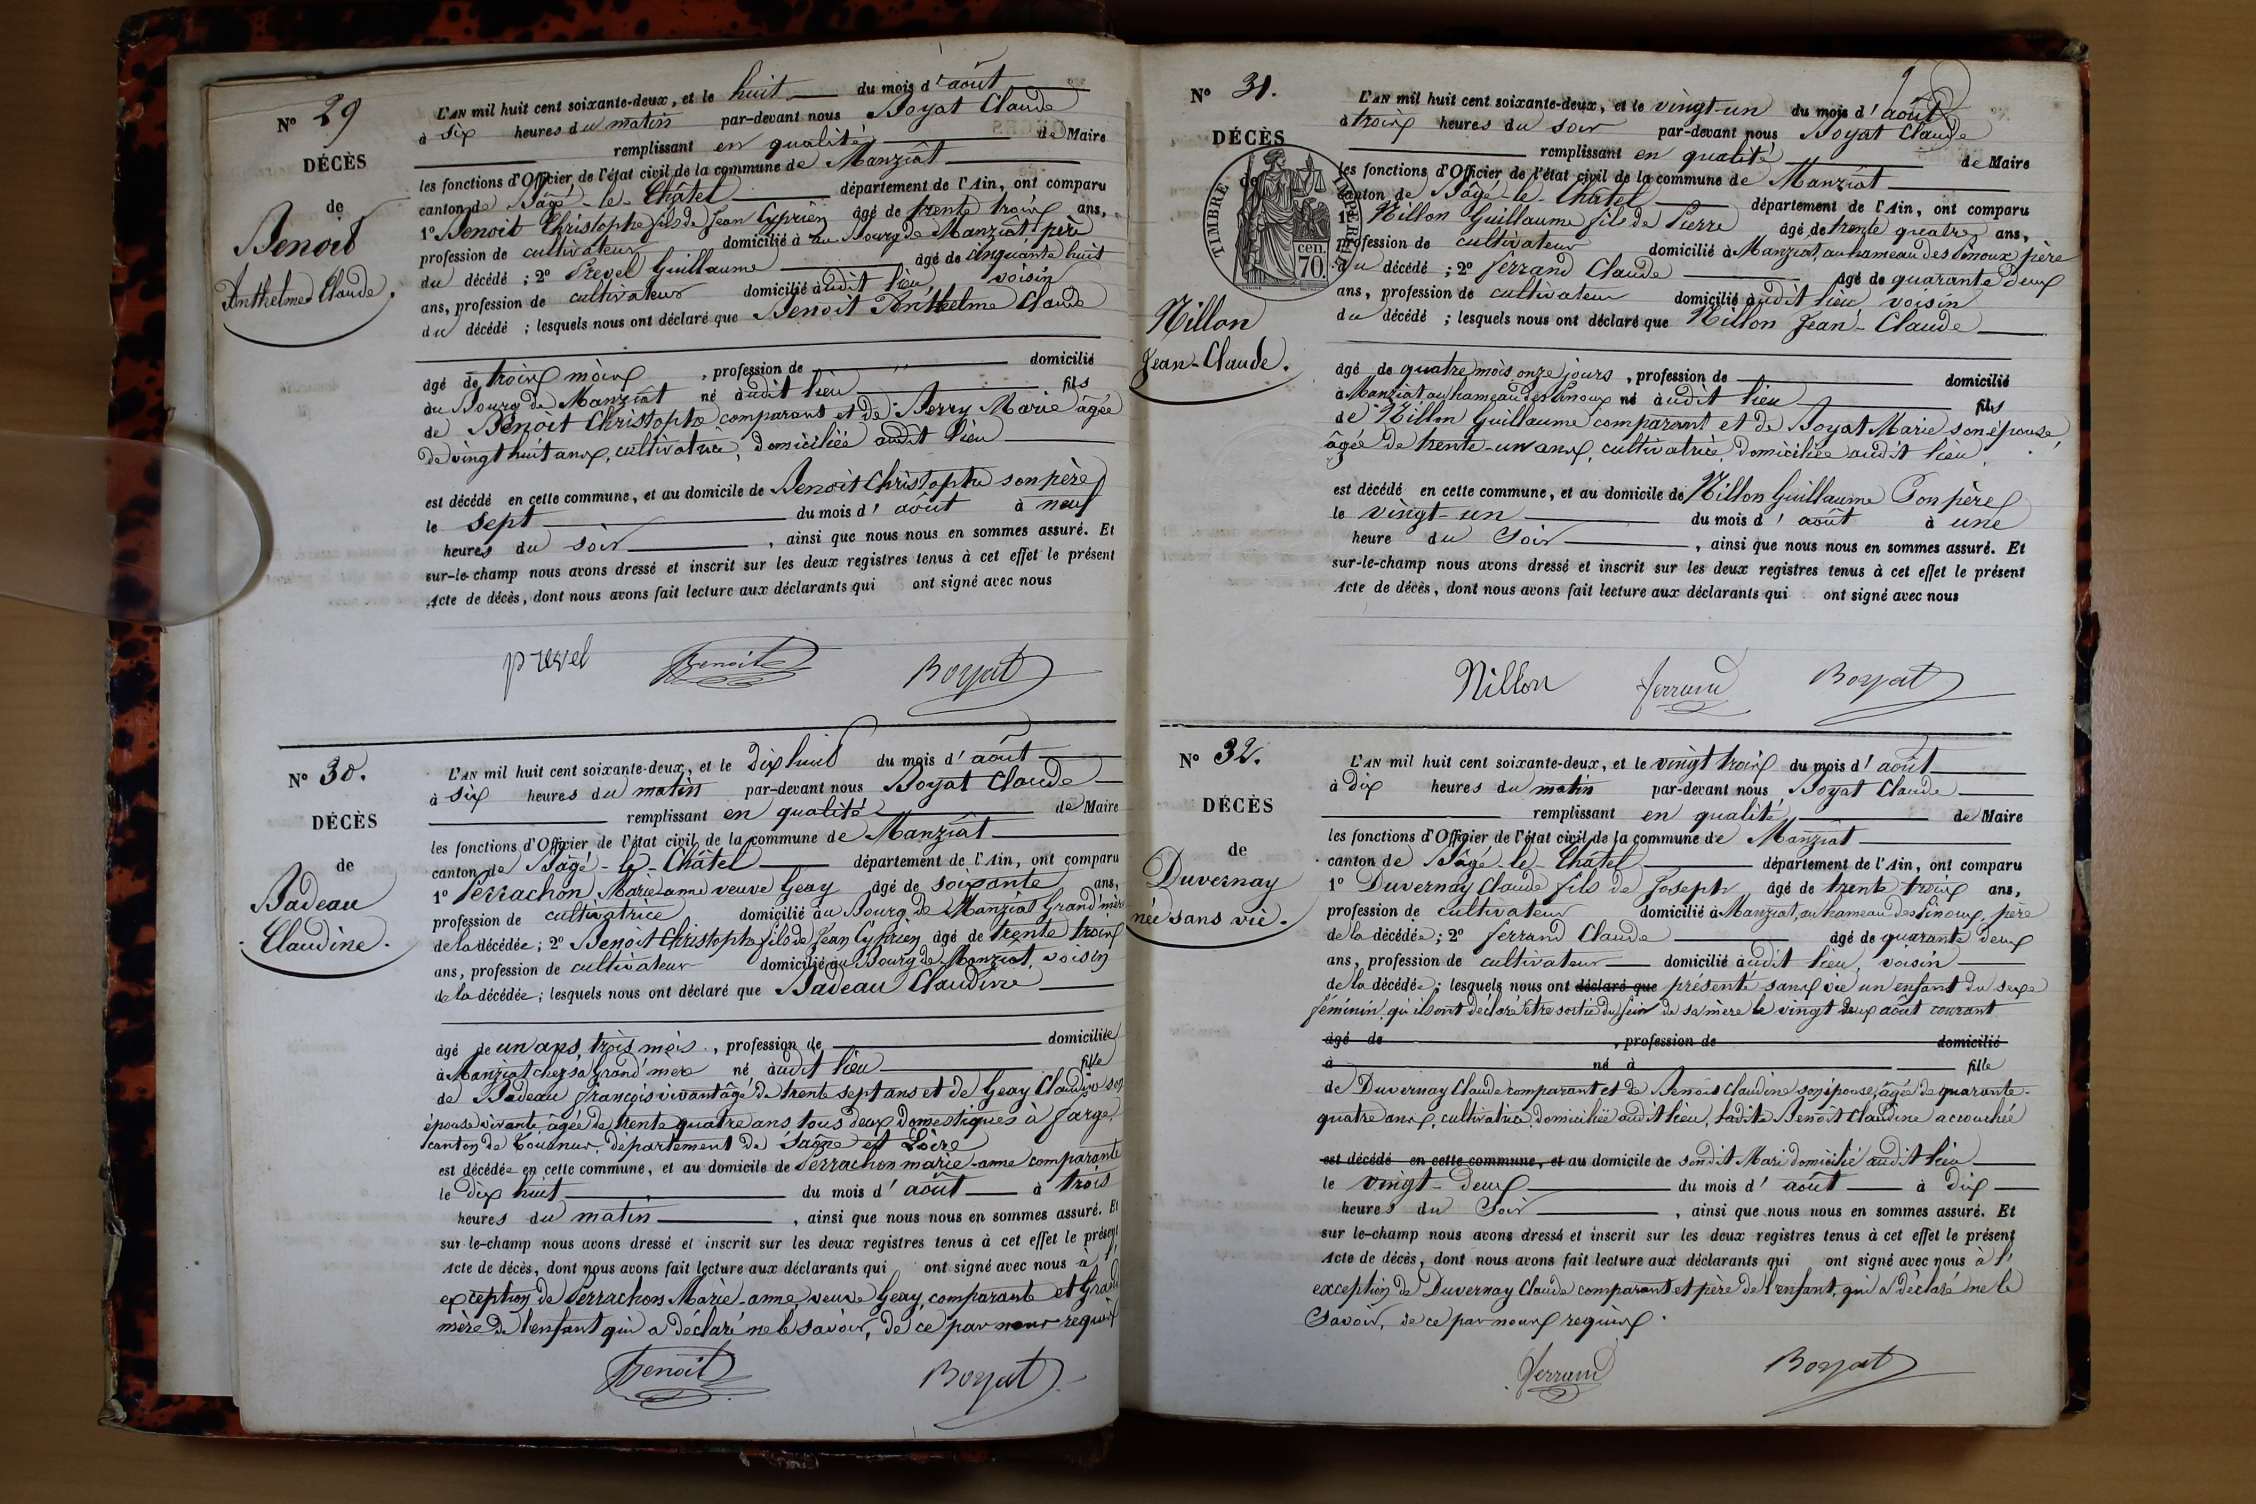 N° 29
DÉCÈS
de
Benoit
Anthelme Claude.
L'AN mil huit cent soixante-deux, et le huit du mois d'août
à six heures du matin par-devant nous Boyat Claude
remplissant en qualité de Maire
les fonctions d'Officier de l'état civil de la commune de Manziat
canton de Bâgé-le-Châtel département de l'Ain, ont comparu
1° Benoit Christophe fils de Jean Cyprien âgé de trente trois ans,
profession de cultivateur domicilié à au Bourg de Manziat père
du décédé ; 2° Prevel Guillaume âgé de cinquante huit
ans, profession de cultivateur domicilié audit lieu, voisin
du décédé ; lesquels nous ont déclaré que Benoit Anthelme Claude
âgé de trois mois, profession de " domicilié
au Bourg de Manziat né audit lieu fils
de Benoit Christophe comparant et de Berry Marie âgée
de vingt huit ans, cultivatrice, domiciliée audit lieu
est décédé en cette commune, et au domicile de Benoit Christophe son père
le sept du mois d'août à neuf
heures du soir, ainsi que nous nous en sommes assuré. Et
sur-le-champ nous avons dressé et inscrit sur les deux registres tenus à cet effet le présent
Acte de décès, dont nous avons fait lecture aux déclarants qui ont signé avec nous
prevel Benoit Boyat
N° 30.
DÉCÈS
de
Badeau
Claudine.
L'AN mil huit cent soixante-deux, et le dix huit du mois d'août
à six heures du matin par-devant nous Boyat Claude
remplissant en qualité de Maire
les fonctions d'Officier de l'état civil de la commune de Manziat
canton de Bâgé-le-Châtel département de l'Ain, ont comparu
1° Perrachon Marie anne veuve Geay âgé de soixante ans,
profession de cultivatrice domicilié au Bourg de Manziat Grand'mère
de la décédée ; 2° Benoit Christophe fils de Jean Cyprien âgé de trente trois
ans, profession de cultivateur domicilié au Bourg de Manziat, voisin
de la décédée ; lesquels nous ont déclaré que Badeau Claudine
âgé de un ans, trois mois, profession de domiciliée
à Manziat chez sa Grand mère né audit lieu fille
de Badeau François vivant âgé de trente sept ans et de Geay Claudine son
épouse vivante âgée de trente quatre ans, tous deux domestiques à Farge
canton de Tournus, département de Saône et Loire
est décédée en cette commune, et au domicile de Perrachon marie-anne comparante
le dix huit du mois d'août à trois
heures du matin, ainsi que nous nous en sommes assuré. Et
sur le-champ nous avons dressé et inscrit sur les deux registres tenus à cet effet le présent
Acte de décès, dont nous avons fait lecture aux déclarants qui ont signé avec nous à l'
exception de Perrachon Marie-anne, veuve Geay, comparante et Grand
mère de l'enfant qui a déclaré ne le savoir, de ce par nous requis
Benoit Boyat
N° 31.
DÉCÈS
de
TIMBRE IMPÉRIAL
cen.
70.
Nillon
Jean-Claude.
L'AN mil huit cent soixante-deux, et le vingt-un du mois d'août
à trois heures du soir par-devant nous Boyat Claude
remplissant en qualité de Maire
les fonctions d'Officier de l'état civil de la commune de Manziat
canton de Bâgé-le-Châtel département de l'Ain, ont comparu
1° Nillon Guillaume fils de Pierre âgé de trente quatre ans,
profession de cultivateur domicilié à Manziat, au hameau des Pinoux père
du décédé ; 2° Ferrand Claude âgé de quarante deux
ans, profession de cultivateur domicilié audit lieu, voisin
du décédé ; lesquels nous ont déclaré que Nillon Jean-Claude
âgé de quatre mois onze jours, profession de domicilié
à Manziat au hameau des Pinoux né audit lieu fils
de Nillon Guillaume comparant et de Boyat Marie son épouse,
âgée de trente-un ans, cultivatrice, domiciliée audit lieu.
est décédé en cette commune, et au domicile de Nillon Guillaume son père
le vingt-un du mois d'août à une
heure du soir, ainsi que nous nous en sommes assuré. Et
sur-le-champ nous avons dressé et inscrit sur les deux registres tenus à cet effet le présent
Acte de décès, dont nous avons fait lecture aux déclarants qui ont signé avec nous
Nillon ferrand Boyat
N° 32.
DÉCÈS
de
Duvernay
née sans vie.
L'AN mil huit cent soixante-deux, et le vingt trois du mois d'août
à dix heures du matin par-devant nous Boyat Claude
remplissant en qualité de Maire
les fonctions d'Officier de l'état civil de la commune de Manziat
canton de Bâgé-le-Châtel département de l'Ain, ont comparu
1° Duvernay Claude fils de Joseph âgé de trente trois ans,
profession de cultivateur domicilié à Manziat, au hameau des Pinoux, père
de la décédée ; 2° Ferrand Claude âgé de quarante deux
ans, profession de cultivateur domicilié audit lieu, voisin
de la décédée ; lesquels nous ont déclaré que présenté sans vie un enfant du sexe
féminin, qu'ils ont déclaré être sortie du sein de sa mère le vingt deux août courant
âgé de , profession de domicilié
à né à fille
de Duvernay Claude comparant et de Benoit Claudine son épouse, âgée de quarante-
quatre ans, cultivatrice, domiciliée audit lieu, ladite Benoit Claudine accouchée
est décédé en cette commune, et au domicile de sondit Mari domicilié audit lieu
le vingt-deux du mois d'août à dix
heures du soir, ainsi que nous nous en sommes assuré. Et
sur le-champ nous avons dressé et inscrit sur les deux registres tenus à cet effet le présent
Acte de décès, dont nous avons fait lecture aux déclarants qui ont signé avec nous à l'
exception de Duvernay Claude comparant et père de l'enfant, qui a déclaré ne le
savoir, de ce par nous requis.
ferrand Boyat